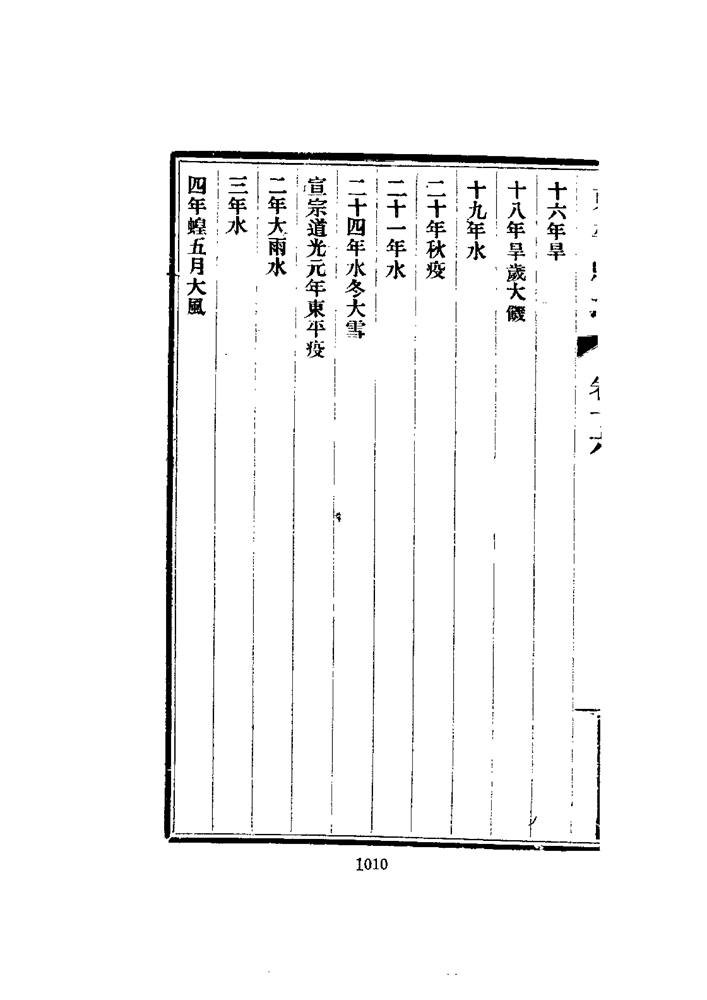 十六年旱
十八年旱歲大饑
十九年水
二十年秋疫
二十一年水
二十四年水冬大雪
宣宗道光元年東平疫
二年大雨水
三年水
四年蝗五月大風
1010